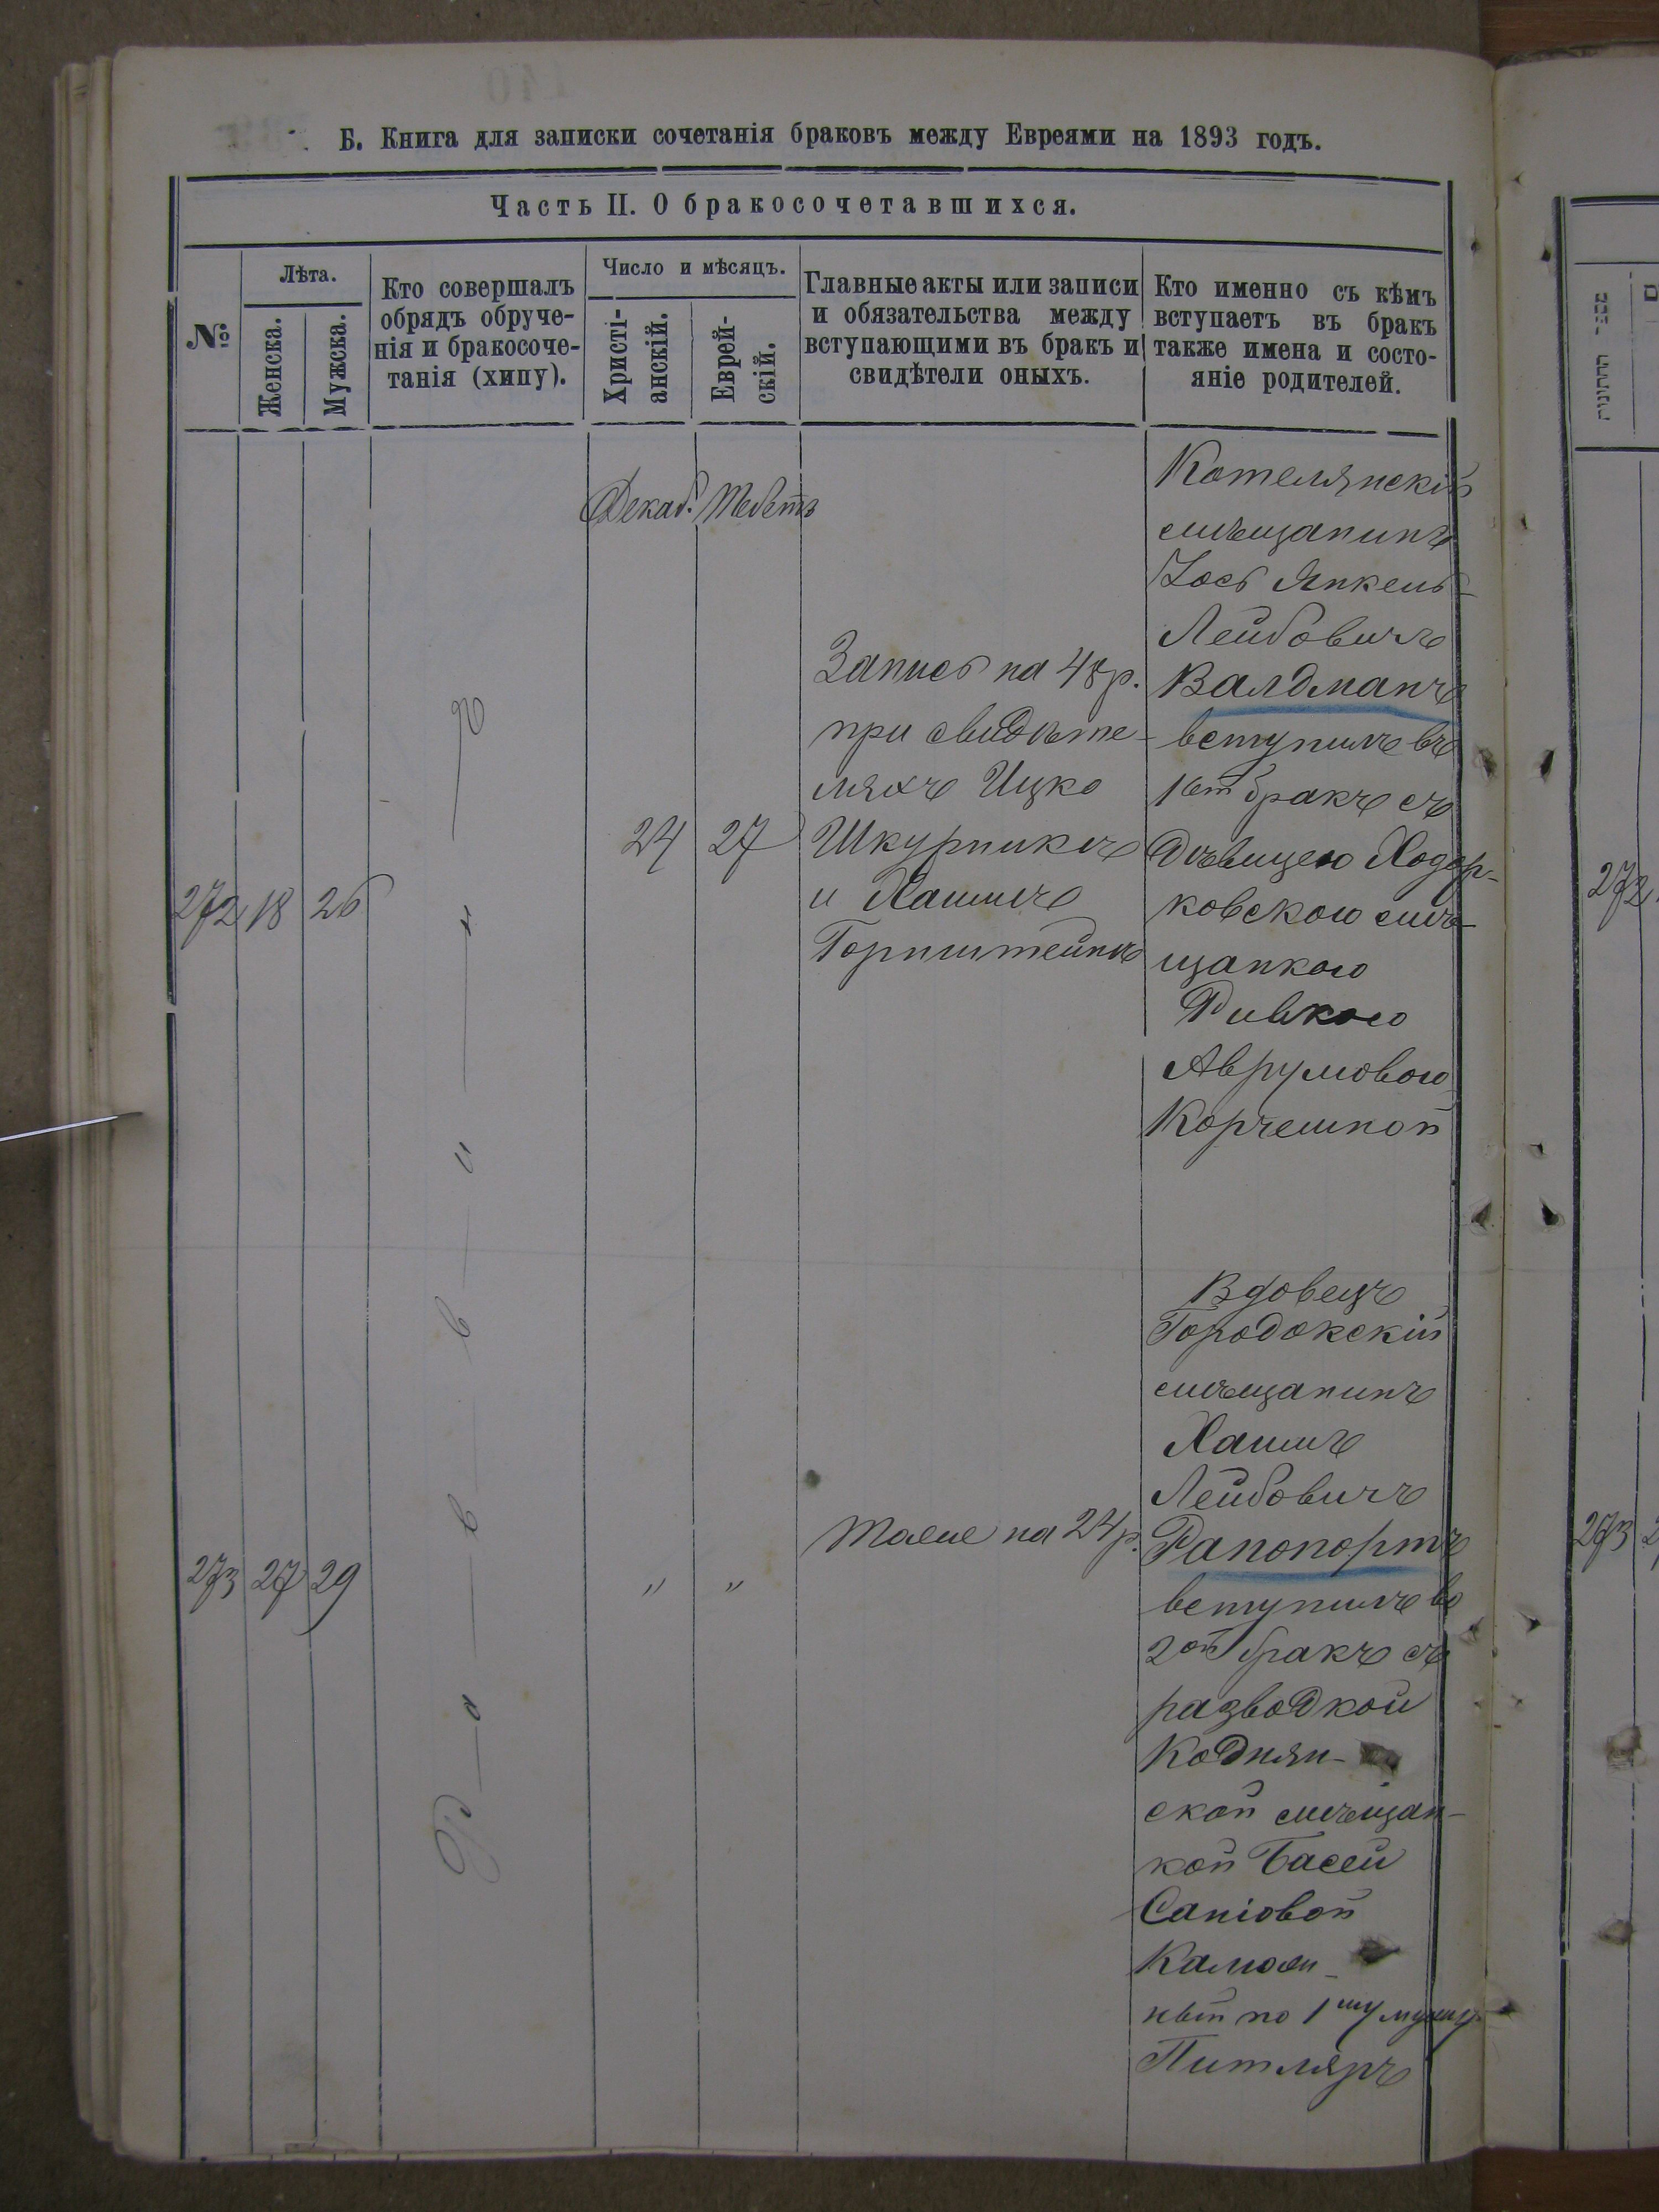 Б. Книга для записки сочетанія браковъ между Евреями на 1893 годъ.
Часть II. О бракосочетавшихся.
№
Лѣта.
Женска.
Мужска.
Кто совершалъ
обрядъ обруче-
нія и бракосоче-
танія (хипу).
Число и мѣсяцъ.
Христі-
анскій.
Еврей-
скій.
Главные акты или записи
и обязательства между
вступающими въ бракъ и
свидѣтели оныхъ.
Кто именно съ кѣмъ
вступаетъ въ бракъ
также имена и состо-
яніе родителей.
Декаб. Тебетъ
272 18 26
Р а в в и н ъ
24 27
Запись на 48 р.
при свидѣте-
ляхъ Ицко
Шкурникъ
и Хаимъ
Горнштейнъ
Котелянскій
мѣщанинъ
Іось Янкель-
Лейбовичъ
Валдманъ
вступилъ въ
1ый бракъ съ
дѣвицею Ходор-
ковскою мѣ-
щанкою
Ривкою
Аврумовою
Корчемной
273 27 29
" "
Тоже на 24 р.
Вдовецъ
Городокскій
мѣщанинъ
Хаимъ
Лейбовичъ
Рапопортъ
вступилъ во
2ой бракъ съ
разводкой
Коднян-
ской мѣщан-
кой Басей
Саніовой
по 1му мужу
Питляръ
272
273